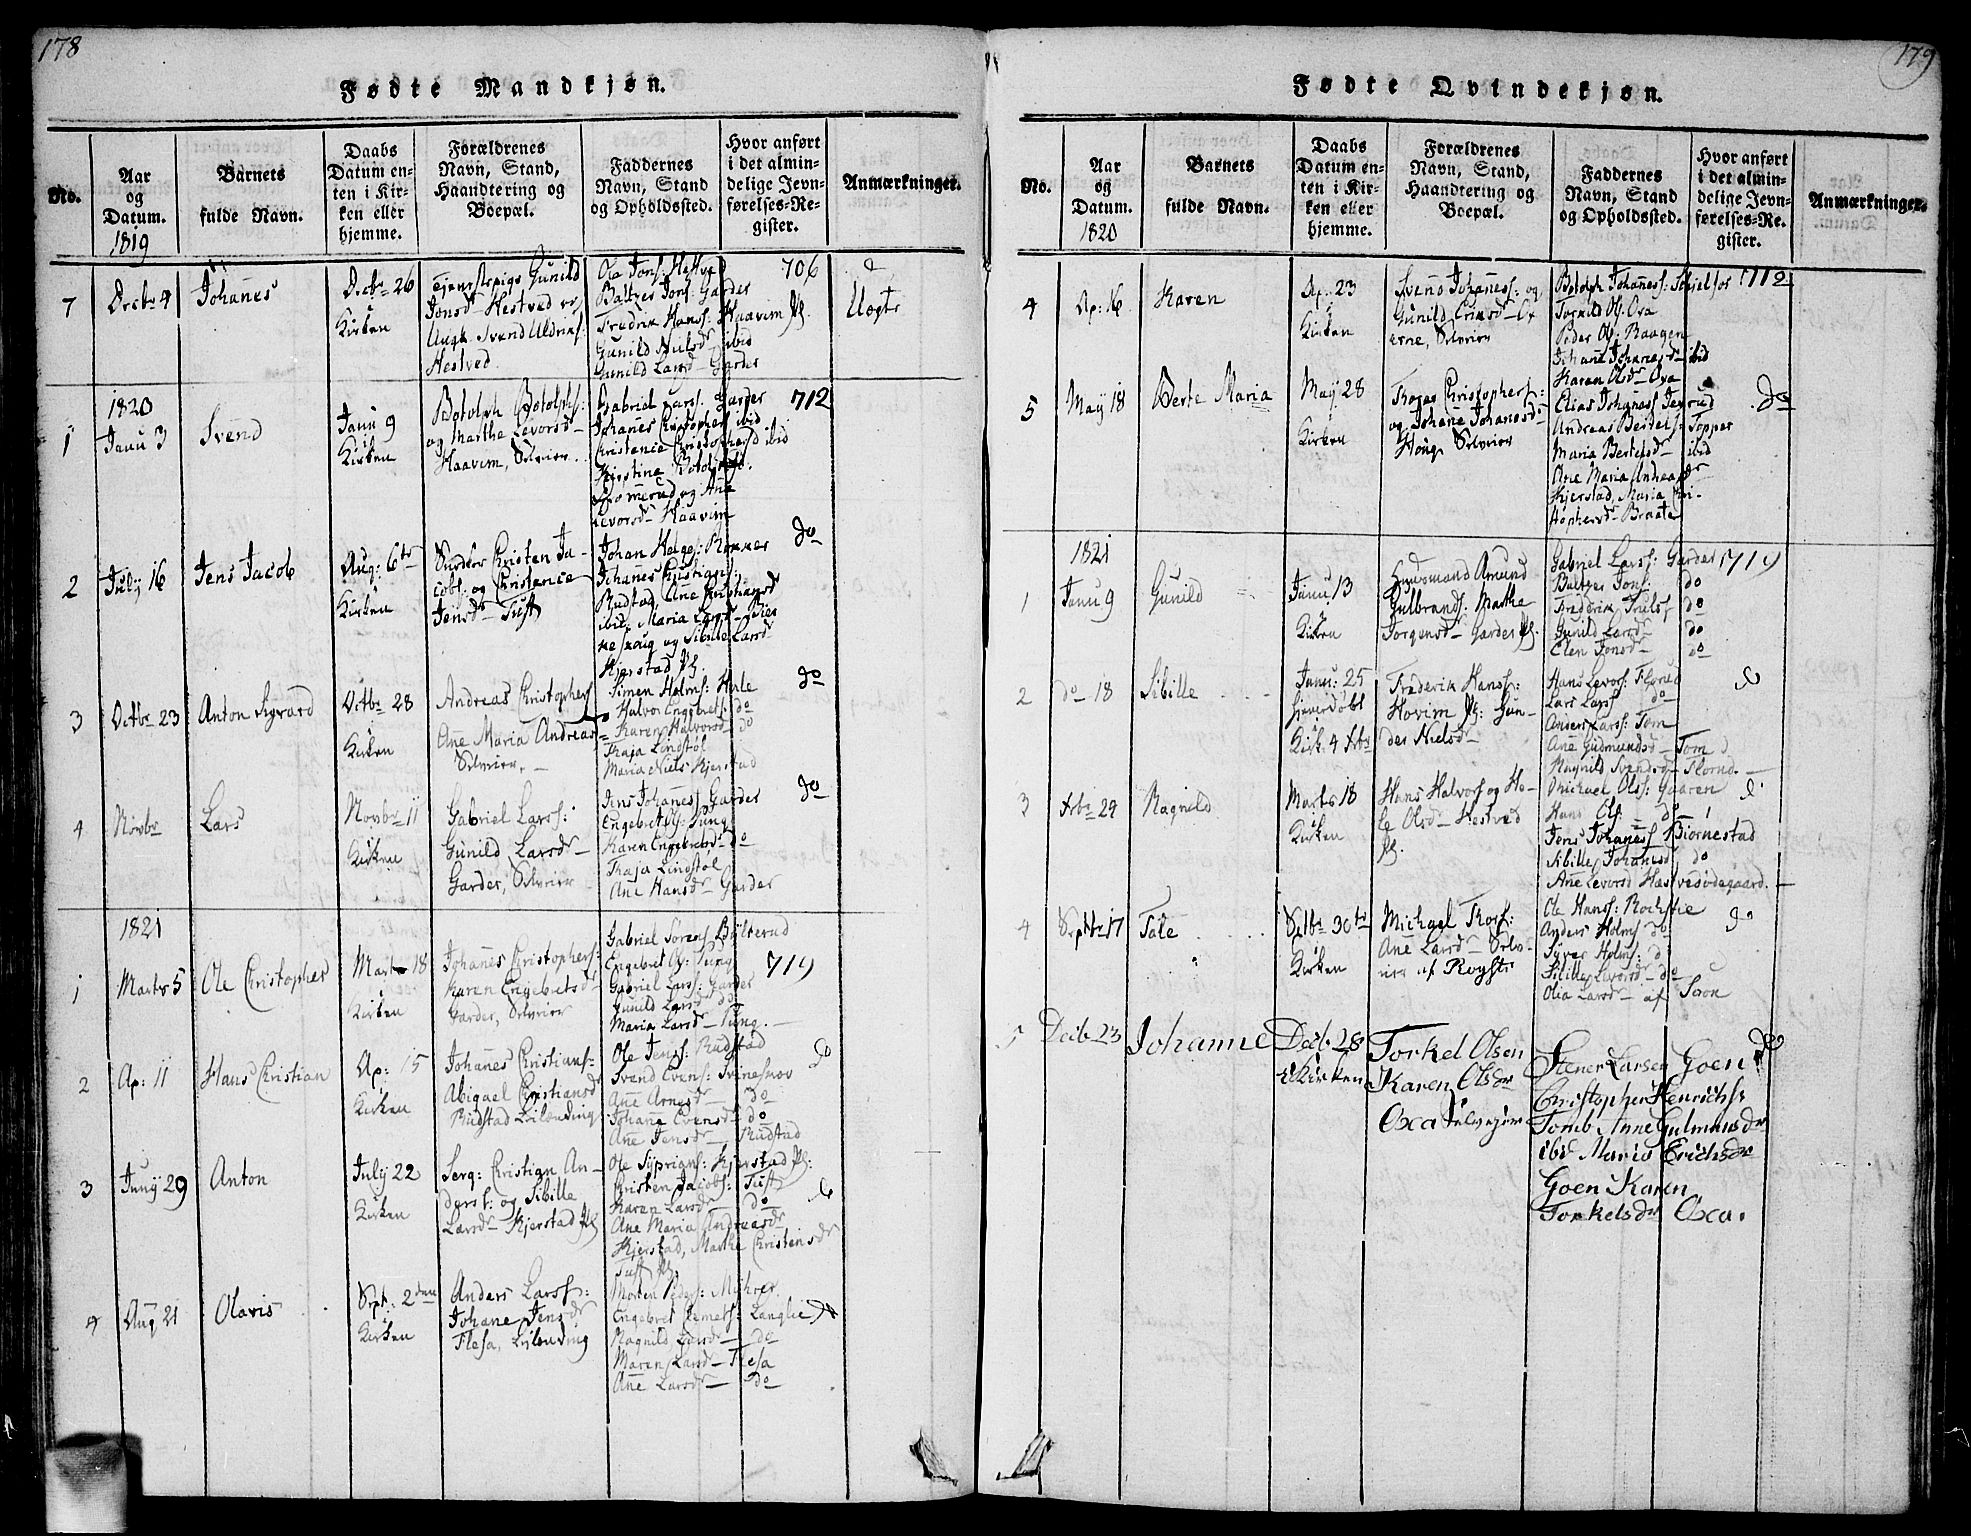 178
Fødte Mandkjøn.
No.
Aar og Datum. 1819
Barnets fulde Navn.
Daabs Datum enten i Kirken eller hjemme.
Forældrenes Navn, Stand, Haandtering og Boepæl.
Faddernes Navn, Stand og Opholdssted.
Hvor anført i det almindelige Jevnførelses-Register.
Anmærkninger.
7
Decbr 4
Johanes
Decbr 26
Kirken
Gunild
Jonsd Hestved og
Ungk Svend Uldriks:
Hestved
Ole Jons: Hestved
Baltzer Jons: Garder
Fredrik Hans: Haavim Pl.
Gunild Nielsd ibid
Gunild Larsd Garder
706
Uægte
1820
1
Janu 3
Svend
Janu 9
Kirken
Botolph Botolphs:
og Marthe Levorsd
Haavim, Selveier
Gabriel Lars: Garder
Johanes Christophers ibid
Christence Christophersd ibid
Kjerstine Botolphsd
og Ane
Levorsd Haavim
712
2
July 16
Jens Jacob
Aug: 6te
Kirken
Christen Ja-
cobs: og Christence
Jensd Tuft
Johan Helges:
Johanes Christians:
Rudstad, Ane Christiansd
ibid, Maria Larsd
og Sibille Larsd
Kjerstad Pl.
do
3
Octbr 23
Anton Sigvard
Octbr 28
Kirken
Andreas Christophers
Ane Maria Andreasd
Selveier
Simen Holms:
Halvor Engebrets: do
Karen Halvorsd do
Thaja Lindstøl
Maria Niels Kjerstad
do
4
Novbr
Lars
Novbr 11
Kirken
Gabriel Larss:
Gunild Larsd
Garder, Selveier
Jens Johaness Garder
Engebret Ol: Pung
Karen Engebretsd do
Thaja Lindstøl
Ane Hansd Garder
do
1821
1
Marts 5
Ole Christopher
Mart 18
Kirken
Johanes Christophers:
Karen Engebretsd
Garder, Selveier
Gabriel Sørens
Engebret Ol: Pung
Gabriel Lars: Garder
Gunild Larsd do
Maria Larsd Pung.
719
2
Ap: 11
Hans Christian
Ap: 15
Kirken
Johanes Christians:
Abigael Christiansd
Rudstad Leilending
Ole Jens: Rudstad
Svend Evens:
Ane Arnesd do
Johane Evensd do
Ane Jensd Rudstad
do
3
Juny 29
Anton
July 22
Kirken
Serg: Christian An-
ders: og Sibille
Larsd Kjerstad Pl
Ole Syprians: Kjerstad Pl:
Christen Jacobs: Tuft
Karen Larsd do
Ane Maria Andreasd
Kjerstad, Marthe Christensd
Tuft Pl
do
4
Aug 21
Olavis
Sept: 2den
Kirken
Anders Larss:
Johane Jensd
Flesa, Leilending
Morten Peders:
Engebret Clemets: Langlie
Ragnild Larsd do
Maren Larsd Flesa
Ane Larsd do
do
179
Fødte Qvindekjøn.
No.
Aar og Datum. 1820
Barnets fulde Navn.
Daabs Datum enten i Kirken eller hjemme.
Forældrenes Navn, Stand, Haandtering og Boepæl.
Faddernes Navn, Stand og Opholdssted.
Hvor anført i det almindelige Jevnførelses-Register.
Anmærkninger.
4
Ap: 16
Karen
Ap: 23
Kirken
Svend Johaness: og
Gunild Eriksd Ox
erne, Selveier
Botolph Johaness:
Torkild Ol. Oxa
Peder Ol: Raagen
Johane Johanesd ibid
Karen Olsd Oxa
712
5
May 18
Berte Maria
May 28
Kirken
Christophers:
og Johane Johanesd
Houg Selveier
Elias Johaness
Andreas Bertels: Topper
Maria Bertelsd ibid
Ane Maria Andreasd
Kjerstad, Maria Chri-
stophersd Braate
do
1821
1
Janu 9
Gunild
Janu 13
Kirken
Huusmand Amund
Gulbrands: Marthe
Jorgensd Garder Pl.
Gabriel Lars: Garder
Baltzer Jons: do
Frederik Truls: do
Gunild Larsd do
Elen Jonsd do
719
2
do 18
Sibille
Janu: 25
hjemdøbt
Kirk. 4
Frederik Hanss:
Hovim Pl: Gun-
der Nielsd
Hans Levors: Florud
Lars Larss do
Anders Larss: Tom
Ane Gudmundsd Tom
Ragnild Svendsd Florud
do
3
29
Ragnild
Marts 18
Kirken
Hans Halvors og He-
le Olsd Hestved
Pl.
Michael Ols: Gaaren
Hans Ols: do
Jens Johaness Biornestad
Sibille Johanesd do
Ane Levorsd Hestvedødegaard
do
4
Septbr 17
Tale
Septbr 30te
Kirken
Michael Thors:
Ane Larsd Selv-
eier af
Ole Hanss:
Anders Holms do
Syver Holms: do
Sibille Levorsd do
Olia Larsd af Soon
do
5
Decb. 23
Johanne
Decb. 28
i Kirken
Torkel Olsen
Karen Olsdr
Oxa Selvejer
Stener Larsen Goen
Christopher Henrichs
Tomb Anne Gulmunsdr
ibd Maria Erichsdr
Goen Karen
Torkelsdr Oxa.
do